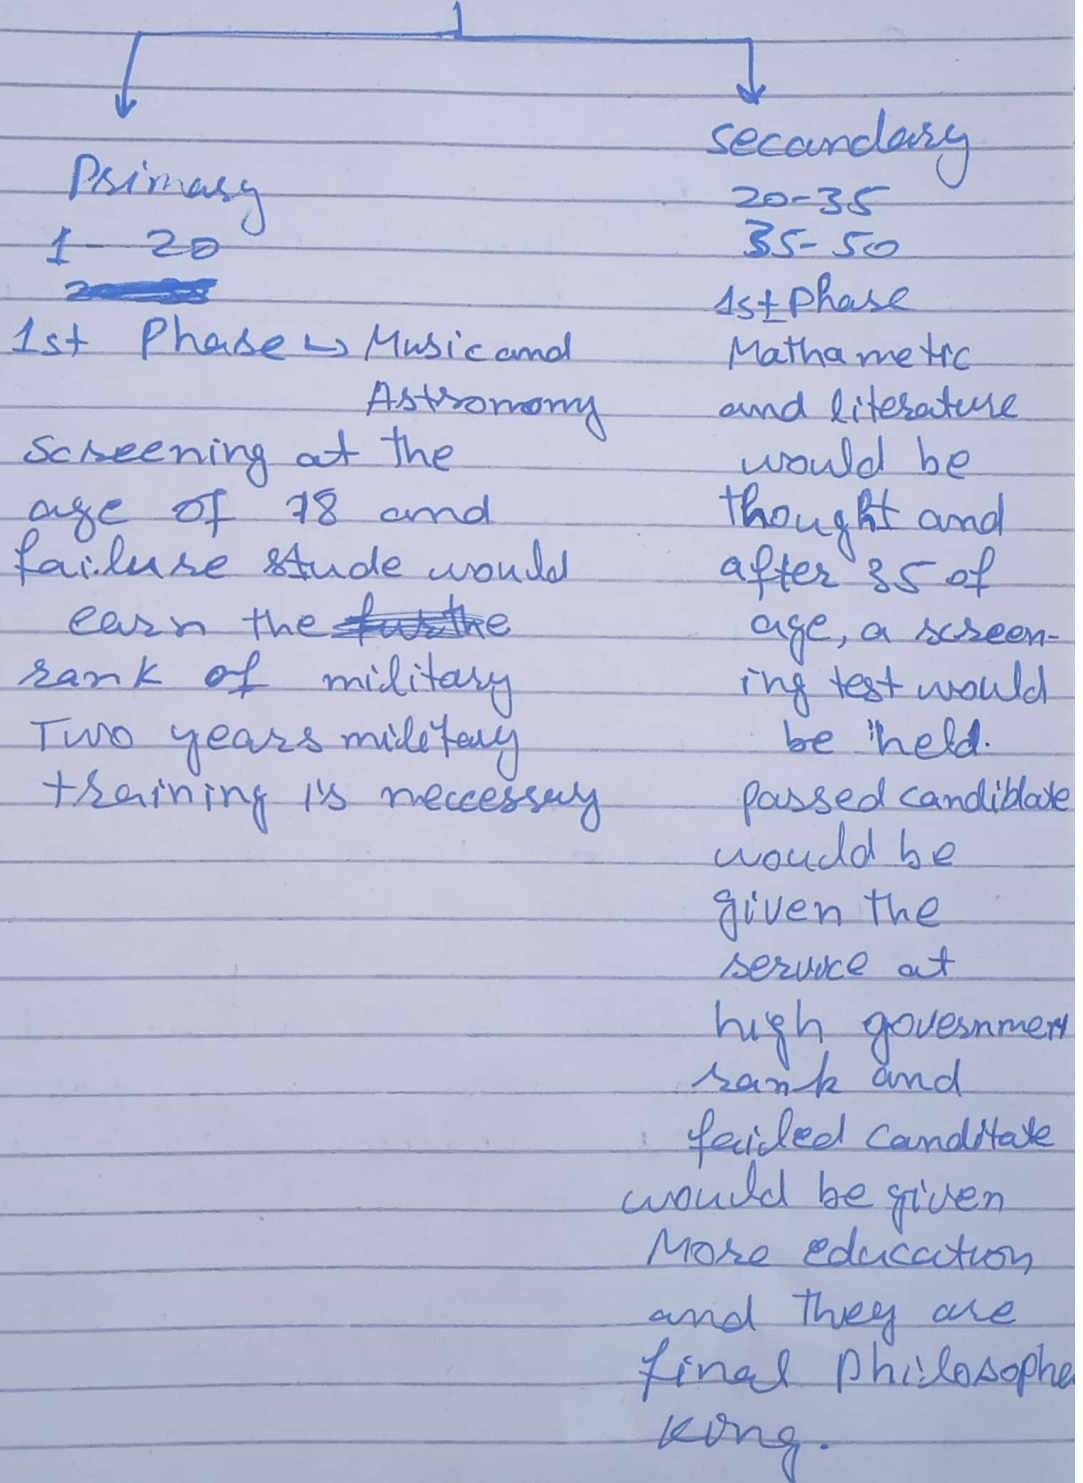 Primary
1 - 20
1st Phase ↳ Music and
Astronomy
screening at the
age of 18 and
failure stude would
earn the
rank of military
Two years military
training is neccessay
secandary
20-35
35-50
1st phase
Mathametic
and literature
would be
thought and
after 35 of
age, a screen-
ing test would
be held.
passed candiblate
would be
given the
service at
high governmen
rank and
failed canditate
would be given
More education
and they are
final Philosophe
King.